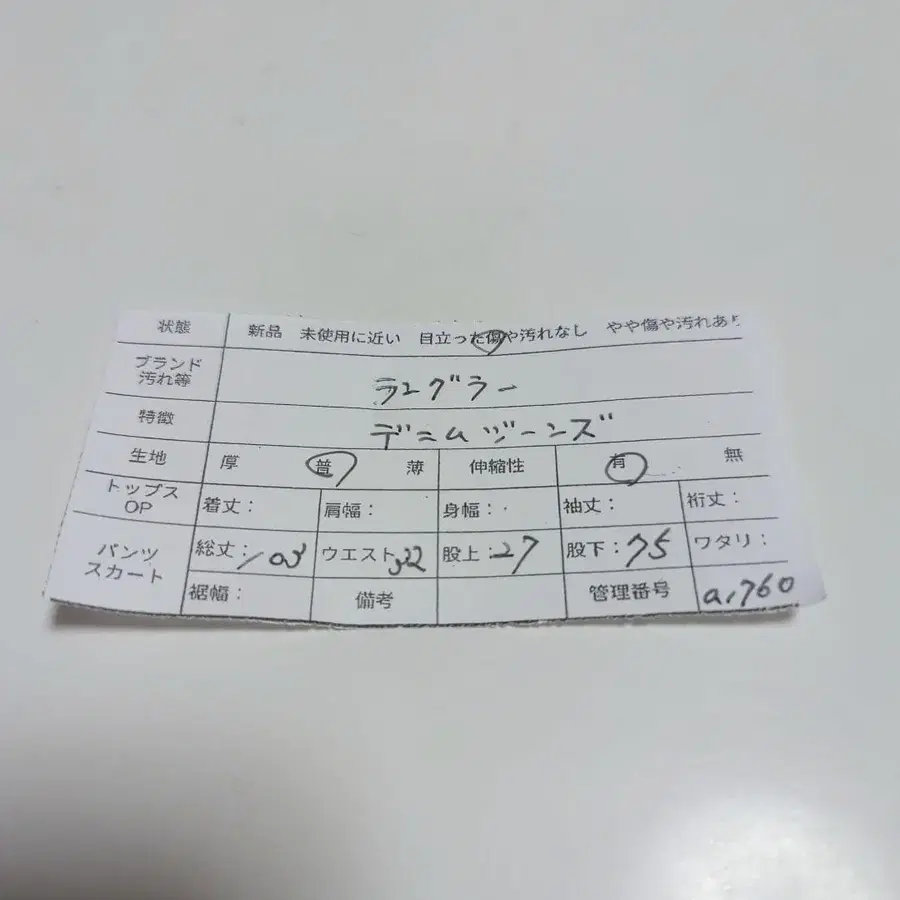 状態 新品 未使用に近い 目立った傷や汚れなし やや傷や汚れあり
ブランド 汚れ等 ラングラー
特徴 デニムジーンズ
生地 厚 普 薄 伸縮性 有 無
トップス OP 着丈: 肩幅: 身幅: 袖丈: 裄丈:
パンツ スカート 総丈:103 ウエスト 32 股上:27 股下:75 ワタリ:
裾幅: 備考 管理番号 a,760